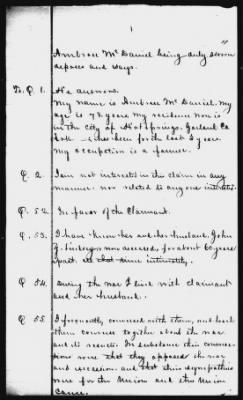 1
Ambrose McDaniel being duly sworn
deposes and says.
To Q. 1. He answers.
My name is Ambrose McDaniel, my
age is 78 years my residence now is
in the city of Hot Springs, Garland Co
Ark — been here for the last 5 years.
My occupation is a farmer.
Q. 2 I am not interested in the claim in any
manner. nor related to any one
Q. 52. In favor of the Claimant.
Q. 53. I have know her and her husband, John
now deceased, for about 60 years
past.
Q 54. during the war I lived with claimant
and her husband.
Q 55. I frequently conversed with them, and heard
them converse together about the war
and its results. In substance their conver-
sations were that they opposed the war
and secession. and that their sympathies
were for the Union and the Union
cause.